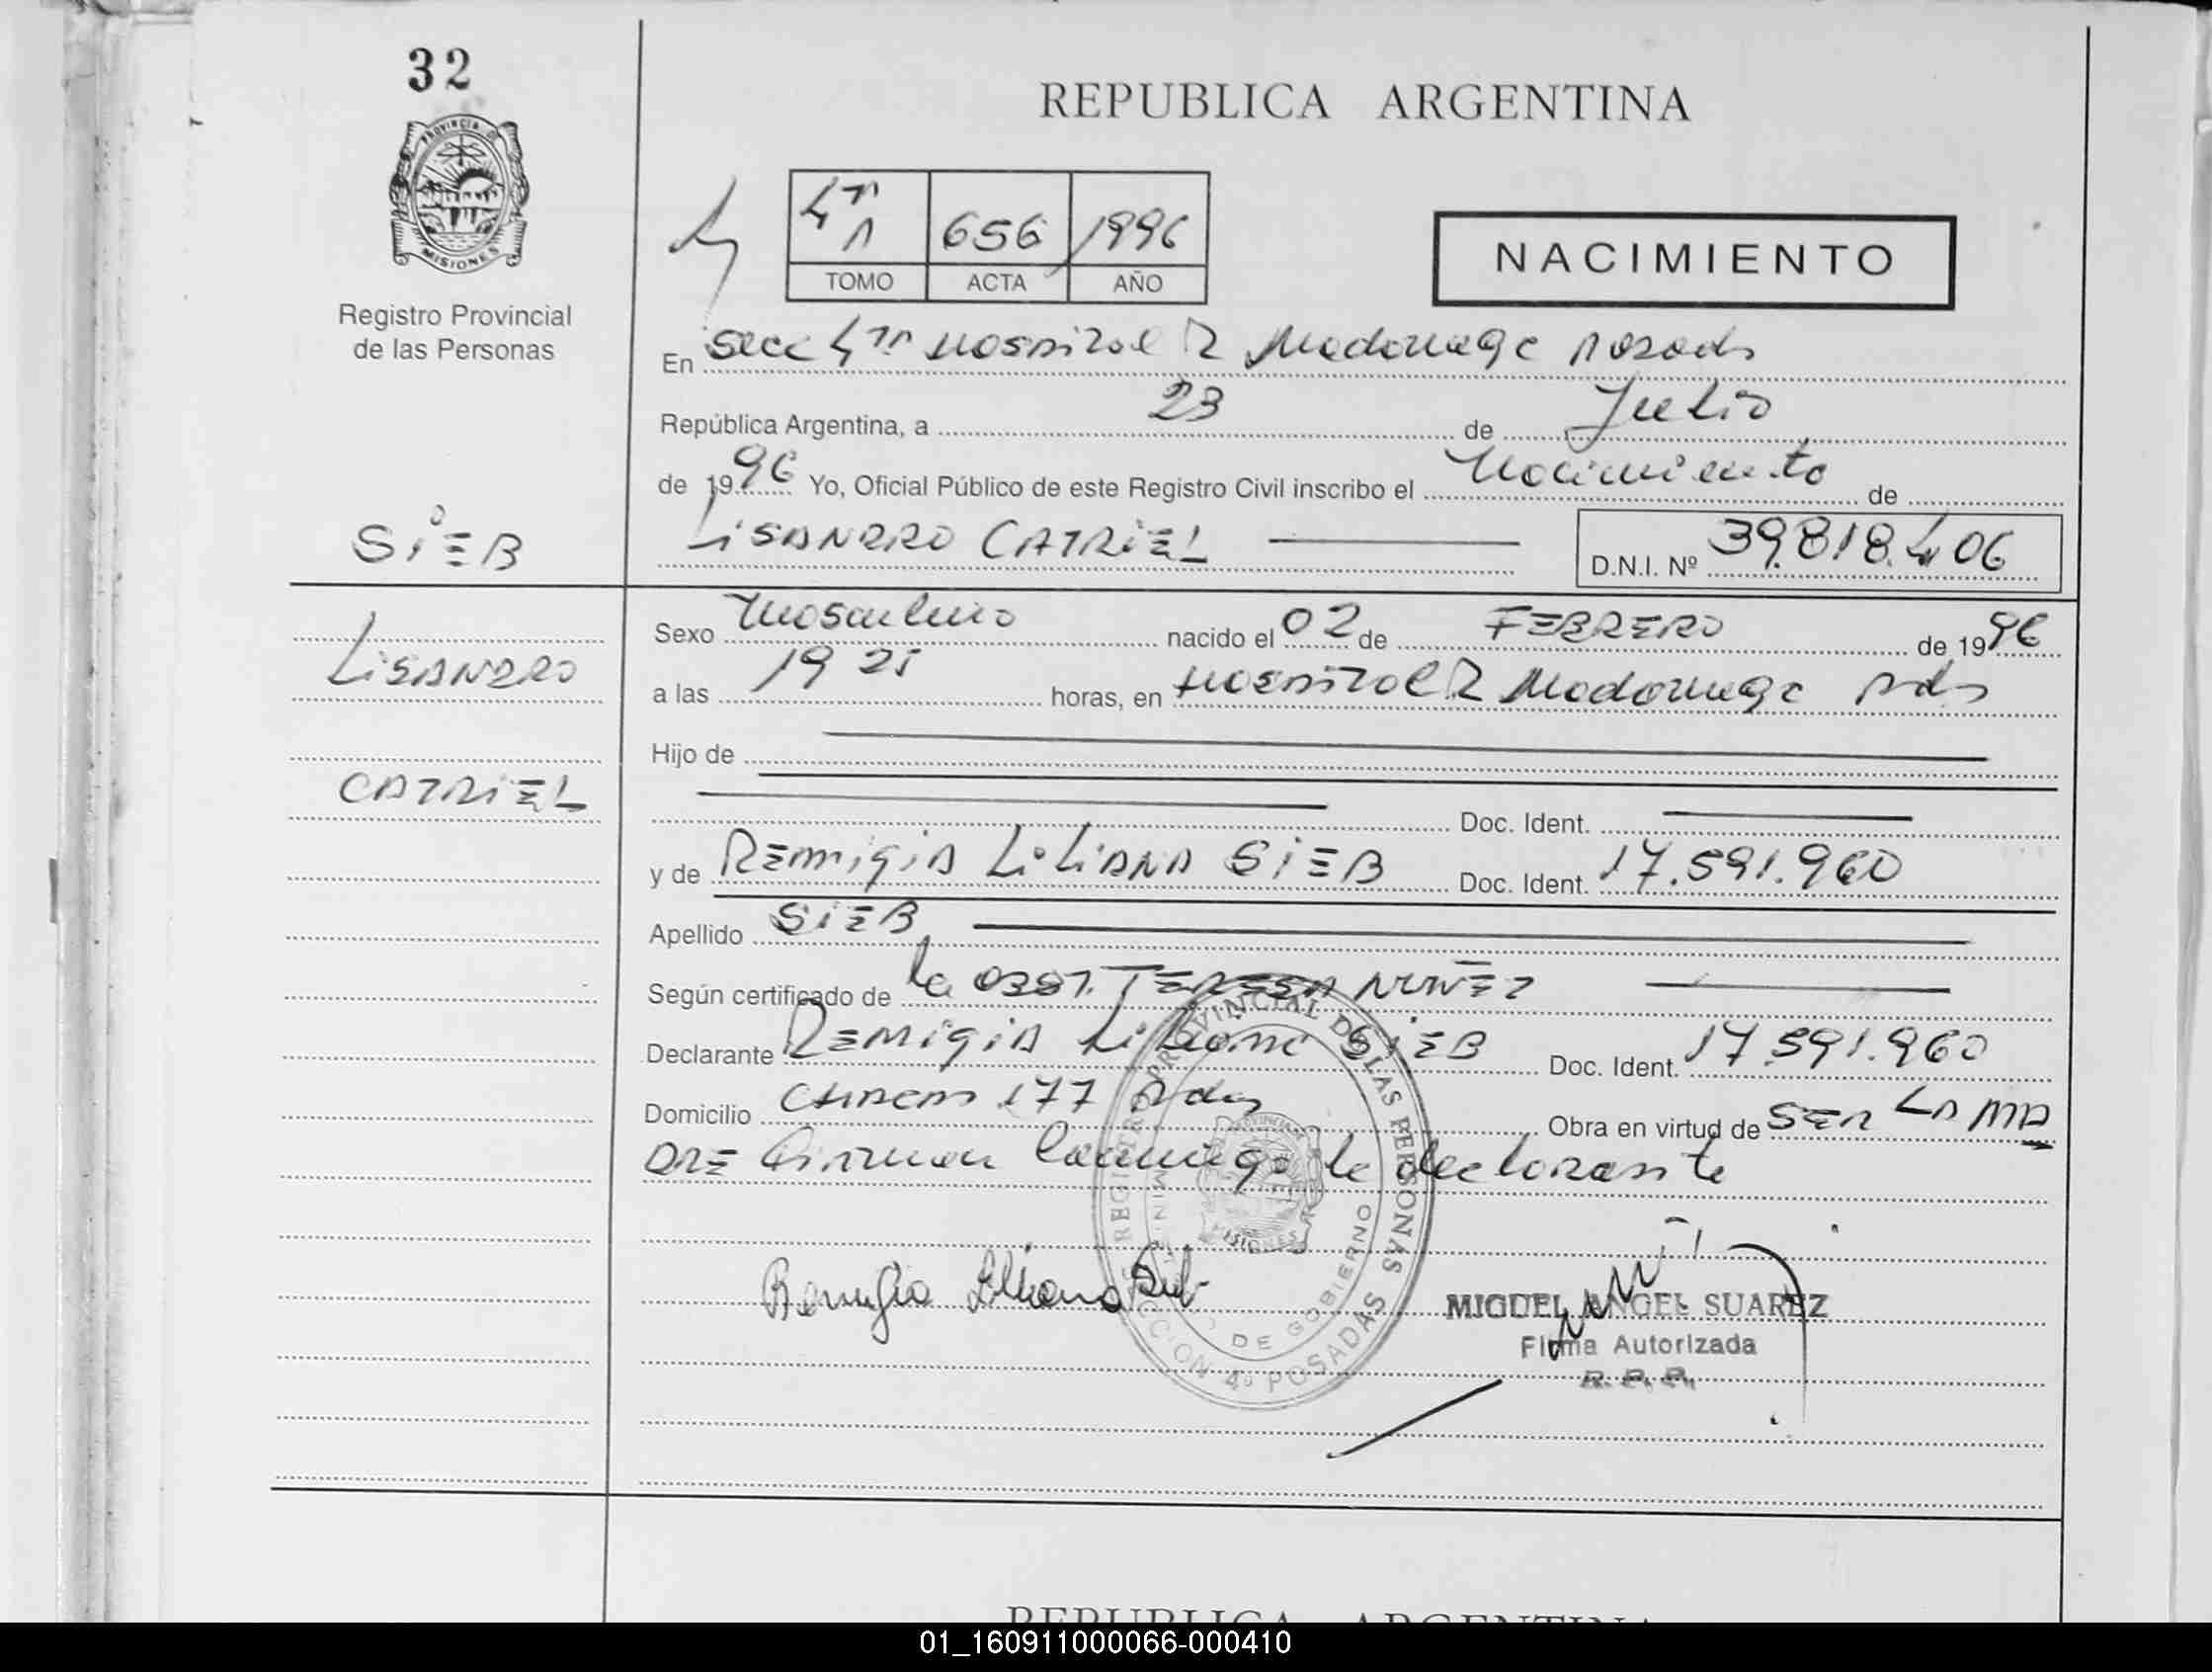 32
REPUBLICA ARGENTINA
PROVINCIA DE
MISIONES
4ta 656 1996
TOMO ACTA AÑO
NACIMIENTO
Registro Provincial
de las Personas
En Secc 4ta Hospital R Madariaga Posadas
República Argentina, a 23 de Julio
de 1996 Yo, Oficial Público de este Registro Civil inscribo el Nacimiento de
SiEB
LiSANDRO CATRiEL D.N.I. Nº 39.818.406
Sexo Masculino nacido el 02 de FEBRERO de 1996
LiSANDRO
a las 19 25 horas, en Hospital R Madariaga Pdas
Hijo de
CATRiEL
Doc. Ident.
y de REMigiA LiLiANA SiEB Doc. Ident. 17.591.960
Apellido SiEB
Según certificado de la OBST. TERESA NUÑEZ
Declarante REMigiA Liliana SiEB Doc. Ident. 17.591.960
Domicilio 177 Pdas Obra en virtud de SER LA MA
DRE Firman conmigo la declarante
REGISTRO PROVINCIAL DE LAS PERSONAS
MINISTERIO DE GOBIERNO
MISIONES
SECCION 4ª POSADAS
Remigia Liliana Sieb
MIGUEL ANGEL SUAREZ
Firma Autorizada
R. P. P.
REPUBLICA ARGENTINA
01_160911000066-000410